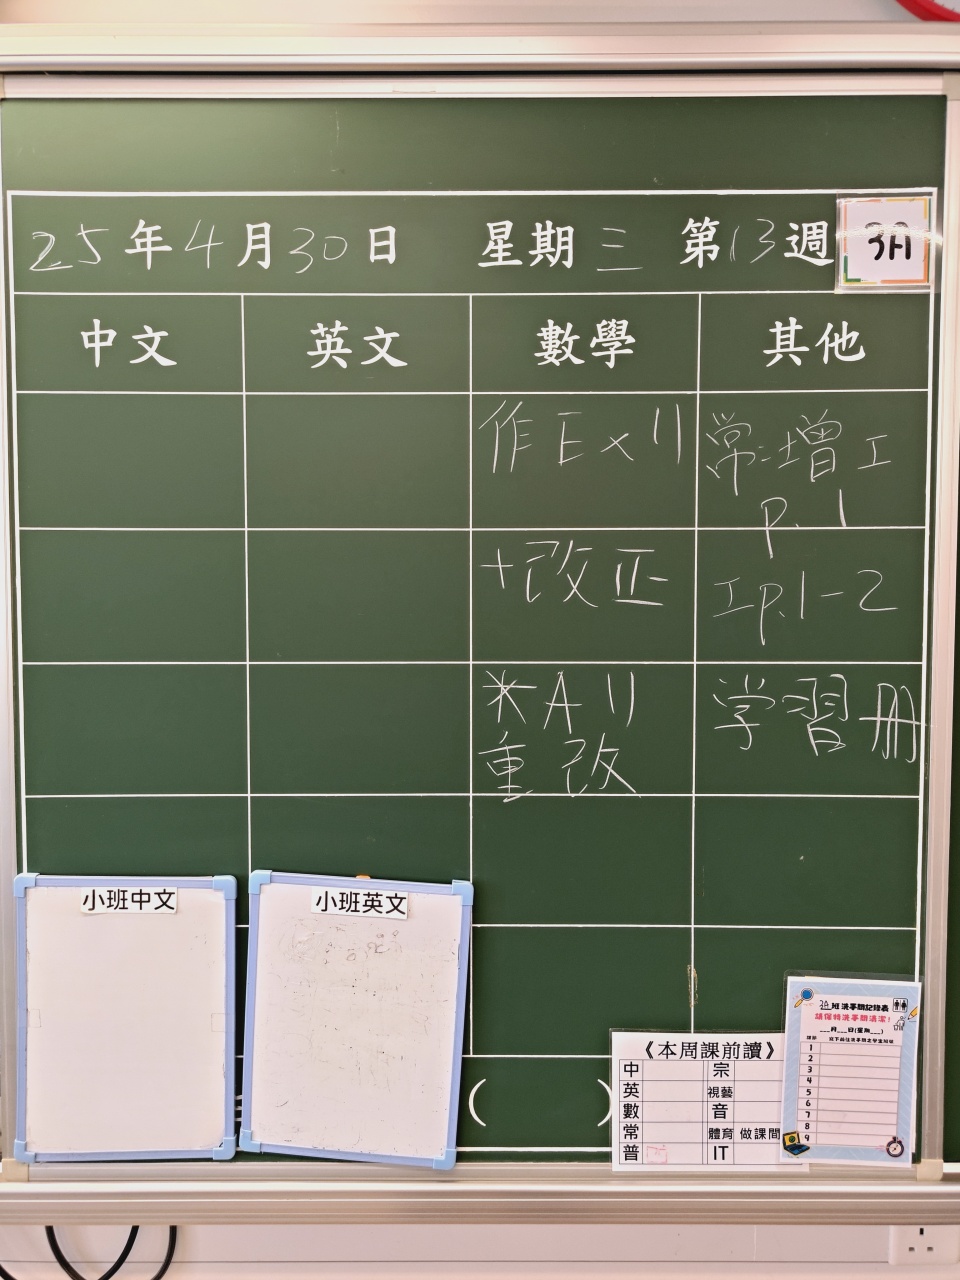 25年4月30日 星期三 第13週 3A
中文 英文 數學 其他
作EX11
+改正
*A11
重改
常:增工
P.1
工P.1-2
学習册
小班中文
小班英文
( )
《本周課前讀》
中 宗
英 視藝
數 音
常 體育 做課間
普 IT
3A班洗手間記錄表
請保持洗手間清潔!
___月___日(星期___)
1
2
3
4
5
6
7
8
9